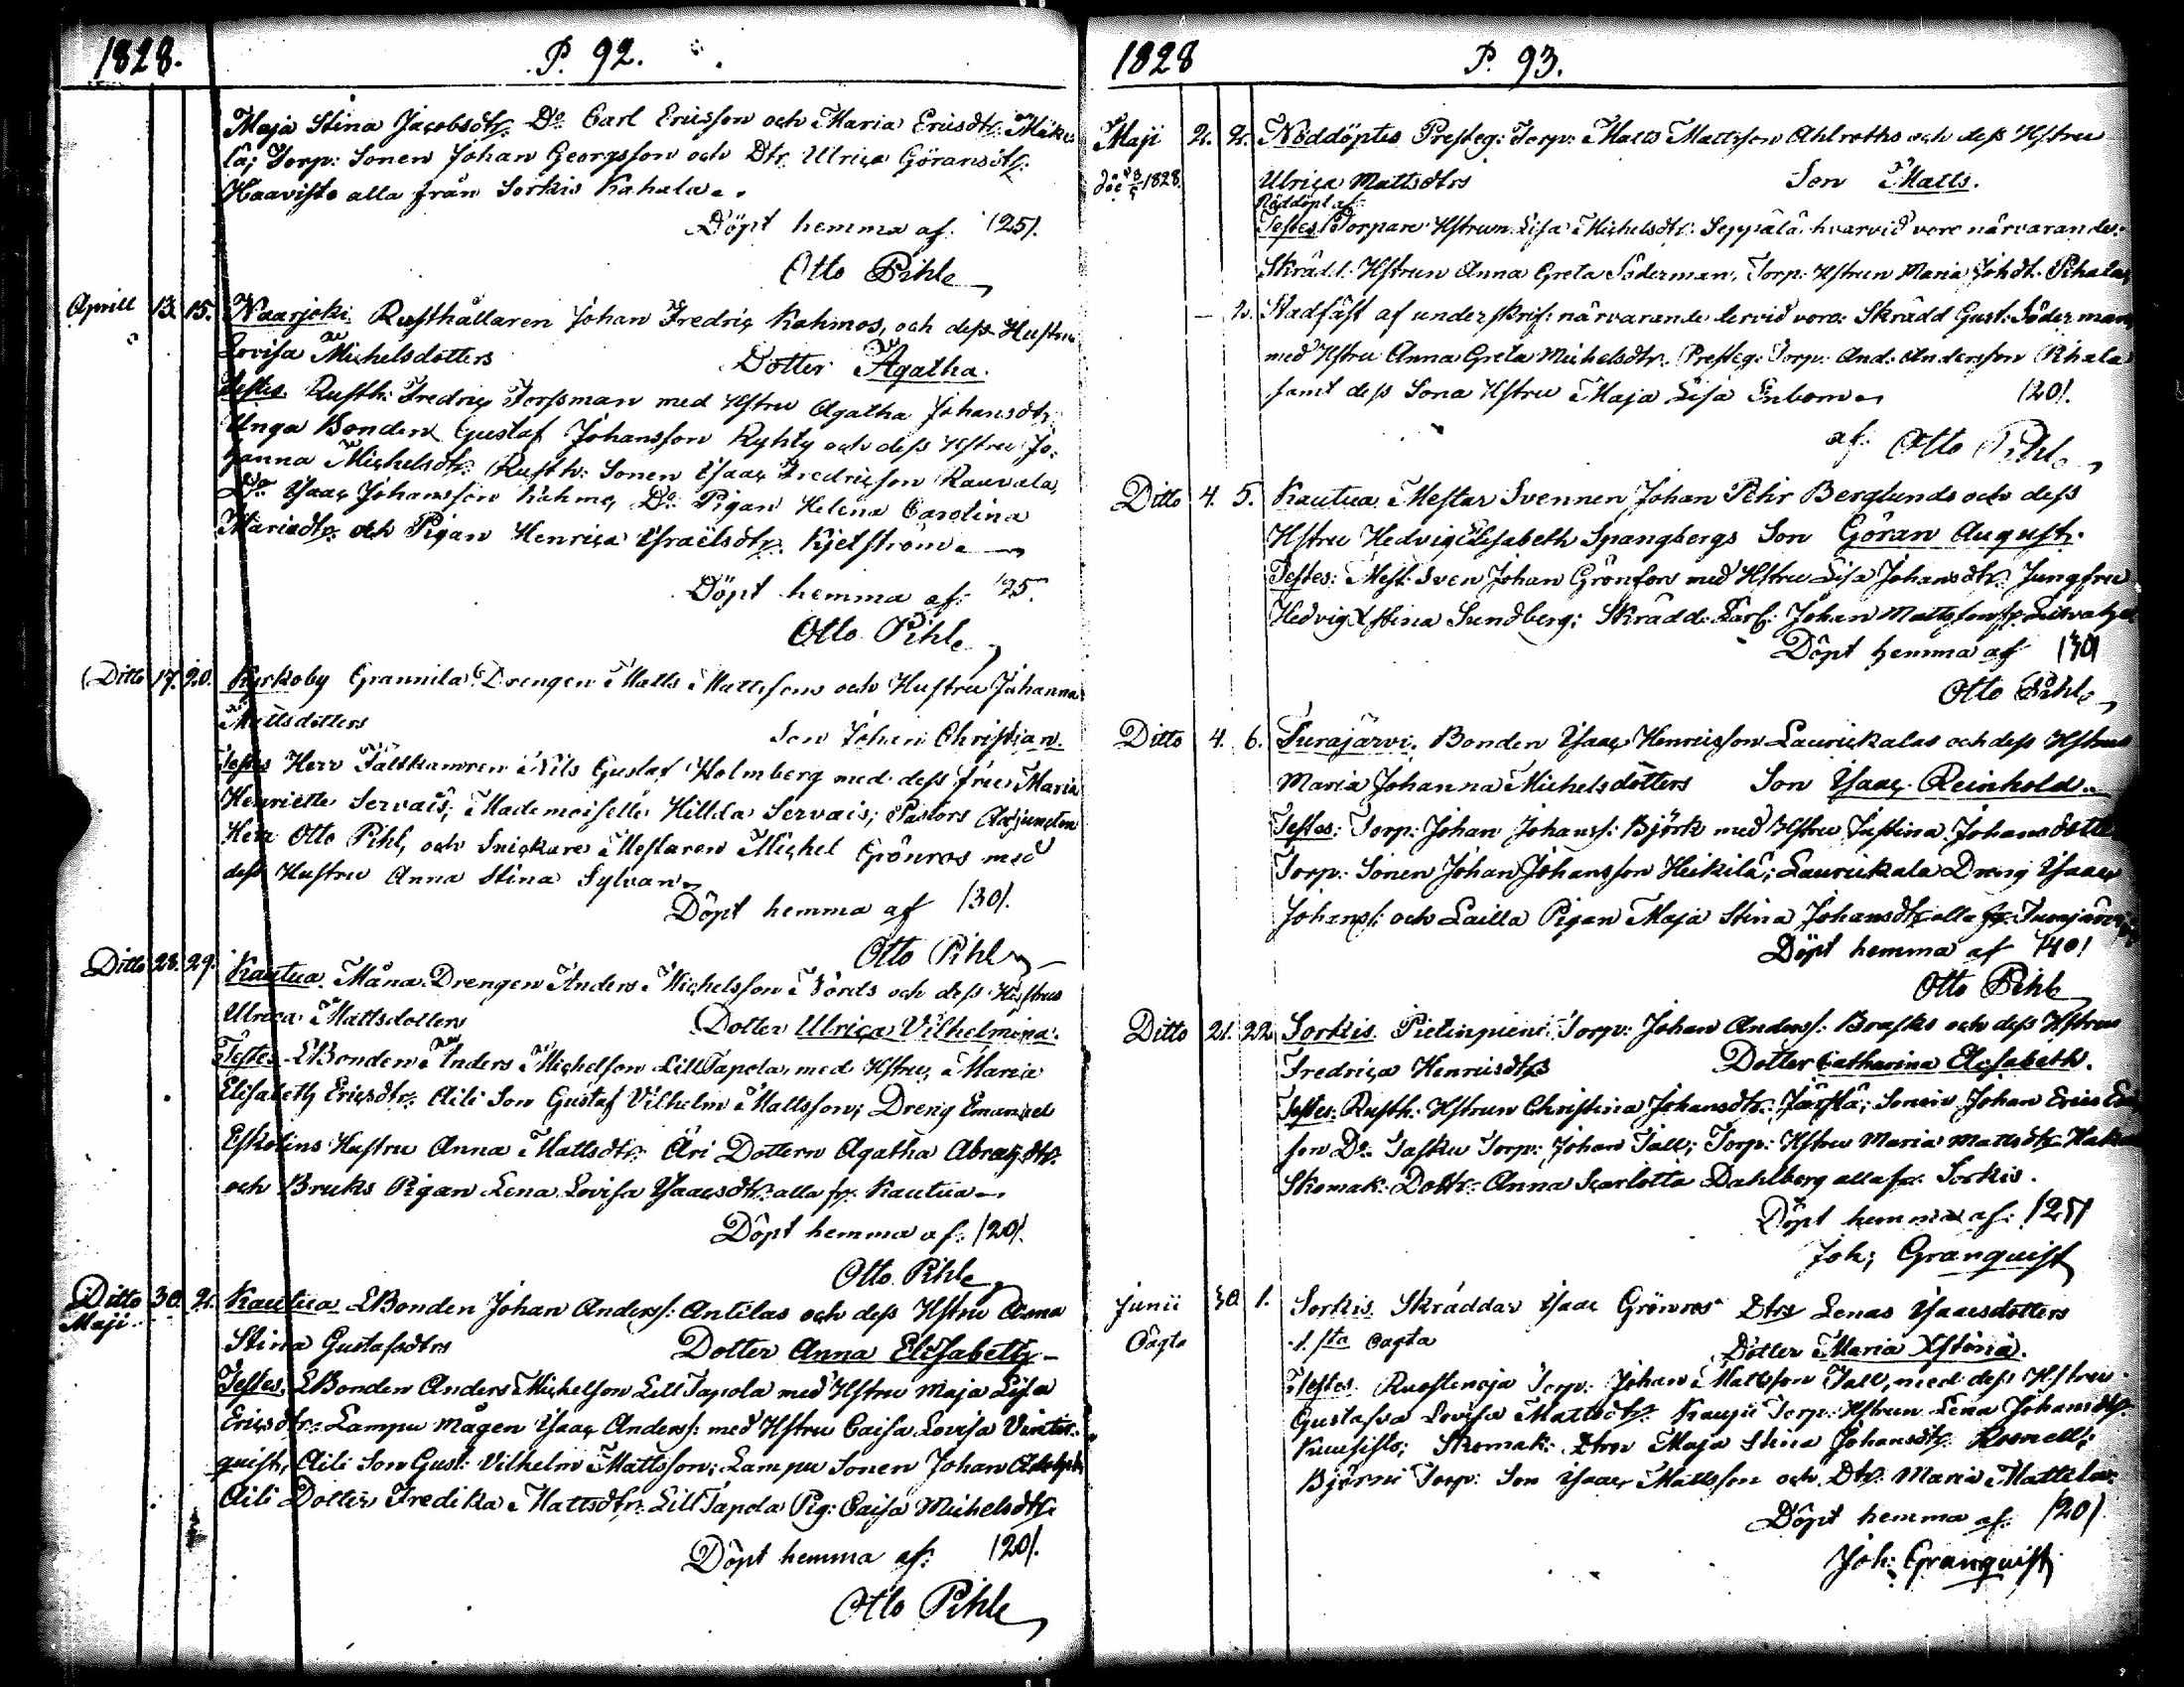 1828. P. 92.
Maja Stina Jacobsdtr. Do Carl Ericsson och Maria Ericsdtr. Mäke
lä; Torp: Sonen Johan Georgsson och Dtr Ulrica Göransdtr:
Haavisto alla från Sorkis Kahala.
Döpt hemma af. /25/.
Otto Pihle
Aprill 13. 15. Naarjoki. Rusthållaren Johan Fredric Kahmos, och dess Hustru
Lovisa Michelsdotters Dotter Agatha.
Testes. Rusth: Fredric Forssman med Hstru Agatha Johansdtr.
Unga Bonden Gustaf Johansson Ryhty och dess Hstru Jo:
hanna Michelsdtr. Rusth: Sonen Isaac Fredricsson Rauvala,
Do Isaac Johansson Kahme, Do Pigan Helena Carolina
Mariædtr. och Pigan Henrica Israëlsdtr. Kjelström.
Döpt hemma af: /25.
Otto Pihle
Ditto 17. 20. Kyrkoby Grannila Drengen Matts Mattssons och Hustru Johanna
Mattsdotters Son Johan Christian.
Testes Herr Fältkamren Nils Gustaf Holmberg med dess fru Maria
Henriette Servais; Mademoiselle Hillda Servais; Pastors Adjuncten
Herr Otto Pihl, och Snickare Mestaren Michel Grönros med
dess Hustru Anna Stina Sylvan.
Döpt hemma af /30/.
Otto Pihl
Ditto 28. 29. Kautua. Måna Drengen Anders Michelsson Nords och dess Hustrus
Ulrica Mattsdotters Dotter Ulrica Vilhelmina.
Testes LBonden Anders Michelsson LillTapola med Hstru Maria
Elisabeth Ericsdtr. Aili Son Gustaf Vilhelm Mattsson; Dreng Emanuel
Eskolins Hustru Anna Mattsdtr. Äri Dottern Agatha Abrah:dtr.
och Bruks Pigan Lena Lovisa Isaacsdtr. alla fr. Kautua.
Döpt hemma af. /20/.
Otto Pihle
Ditto 30. 2. Kautua LBonden Johan Anderss: Antilas och dess Hstru Anna
Maji
Stina Gustafsdtrs Dotter Anna Elisabeth
Testes. LBonden Anders Michelsson LillTapola med Hstru Maja Lisa
Ericsdtr. Lampu Mågen Isaac Anderss: med Hstru Caisa Lovisa Vinter
quist, Aili Son Gust: Vilhelm Mattsson; Lampu Sonen Johan Adolph
Aili Dotter Fredika Mattsdtr. LillTapola Pig: Caisa Michelsdtr.
Döpt hemma af: /20/.
Otto Pihle
1828 P. 93.
Maji 2. 2. Nöddöptes Presteg: Torp: Matts Mattsson Ahlroths och dess Hstru
1828.
Ulrica Mattsdtrs Son Matts.
Nöddöpt af
Testes Torpare Hstrun Lisa Michelsdtr. Seppälä hvarvid voro närvarande:
Skrädd: Hstrun Anna Greta Söderman, Torp: Hstrun Maria Johdt. Pihala,
— 2. Stadfäst af underskrif: närvarande dervid voro: Skrädd Gust: Söderman
med Hstru Anna Greta Michelsdtr. Presteg: Torp: And: Andersson Pihala
samt dess Sona Hstru Maja Lisa Enbom /20/.
af: Otto Pihle
Ditto 4. 5. Kautua Mestar Svennen Johan Pehr Berglunds och dess
Hstru Hedvig Elisabeth Spangbergs Son Göran August.
Testes: Mest: Sven Johan Grönfors med Hstru Lisa Johansdtr. Jungfru
Hedvig Xstina Sundberg; Skrädd: Karl: Johan Mattsson
Döpt hemma af /30/
Otto Pihle
Ditto 4. 6. Turajärvi. Bonden Isaac Henricsson Laurikalas och dess Hstrus
Maria Johanna Michelsdotters Son Isaac Reinhold.
Testes: Torp: Johan Johanss: Björk med Hstru Justina Johansdotter
Torp: Sonen Johan Johansson Heikilä; Laurikala Dreng Isaac
Johanss: och Lailla Pigan Maja Stina Johansdtr. alla fr. Turajärvi
Döpt hemma af /40/
Otto Pihle
Ditto 21. 22. Sorkis Pietinpieni Torp: Johan Anderss: Brasks och dess Hstrus
Fredrica Henricsdtrs Dotter Catharina Elisabeth.
Testes. Rusth: Hstrun Christina Johansdtr. Järstä; Sonen Johan Erics
son Do Tasku Torp: Johan Tall; Torp: Hstru Maria Mattsdtr.
Skomak: Dottr. Anna Scarlotta Dahlberg alla fr. Sorkis.
Döpt hemma af: /25/
Joh; Granquist
Junii 30. 1. Sorkis Skräddar Isaac Grönros Dtrs Lenas Isaacsdotters
Oägta 1.sta oägta Dotter Maria Xstina.
Testes Ruostenoja Torp: Johan Mattsson Tall, med dess Hstru
Gustafva Lovisa Mattsdtr. Kauju Torp: Hstrun Lena Johansdtr.
Kuusisto; Skomak: Dtren Maja Stina Johansdtr. Rosnell;
Björni Torp: Son Isaac Mattsson och Dtr. Maria Mattila.
Döpt hemma af. /20/
Joh: Granquist